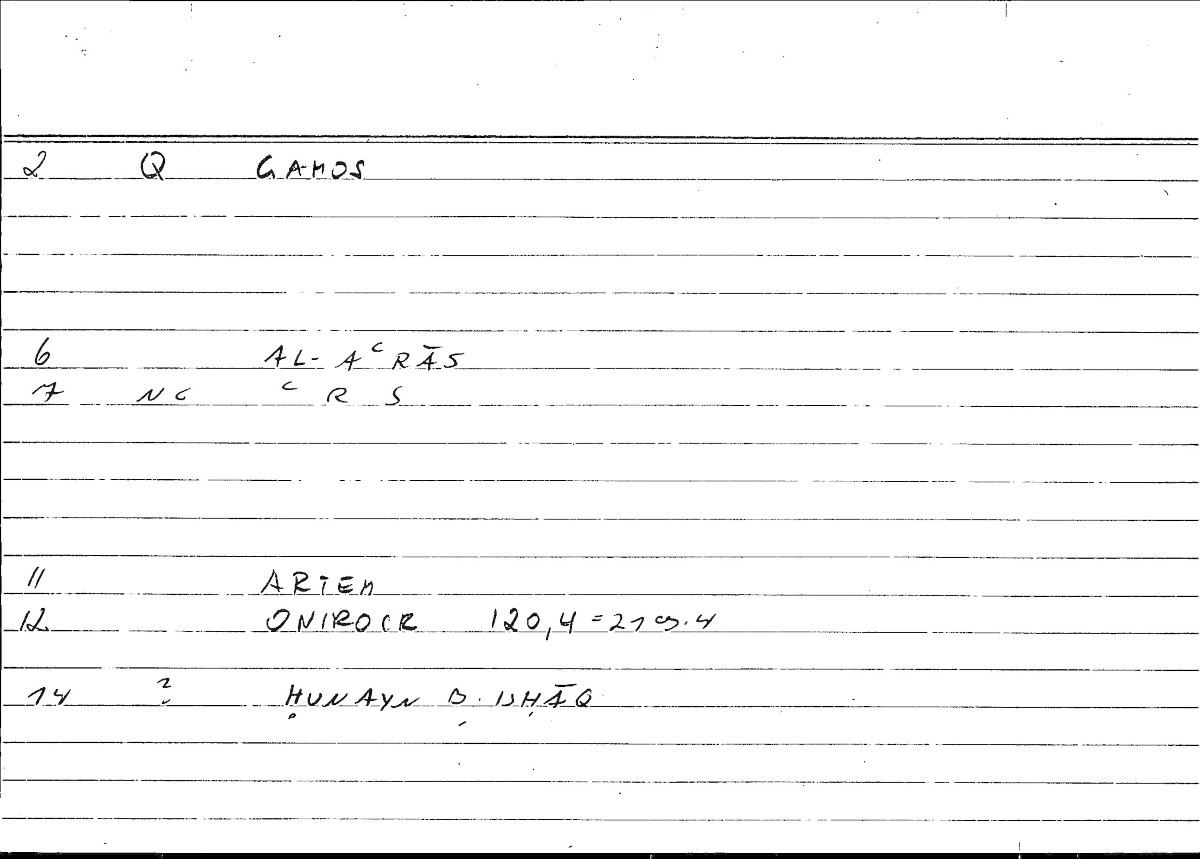 2 Q GAMOS
6 AL-AʿRĀS
7 NC ʿ R S
11 ARTEM
12 ONIROCR 120,4 = 219.4
14 ? ḤUNAYN B. ISḤĀQ